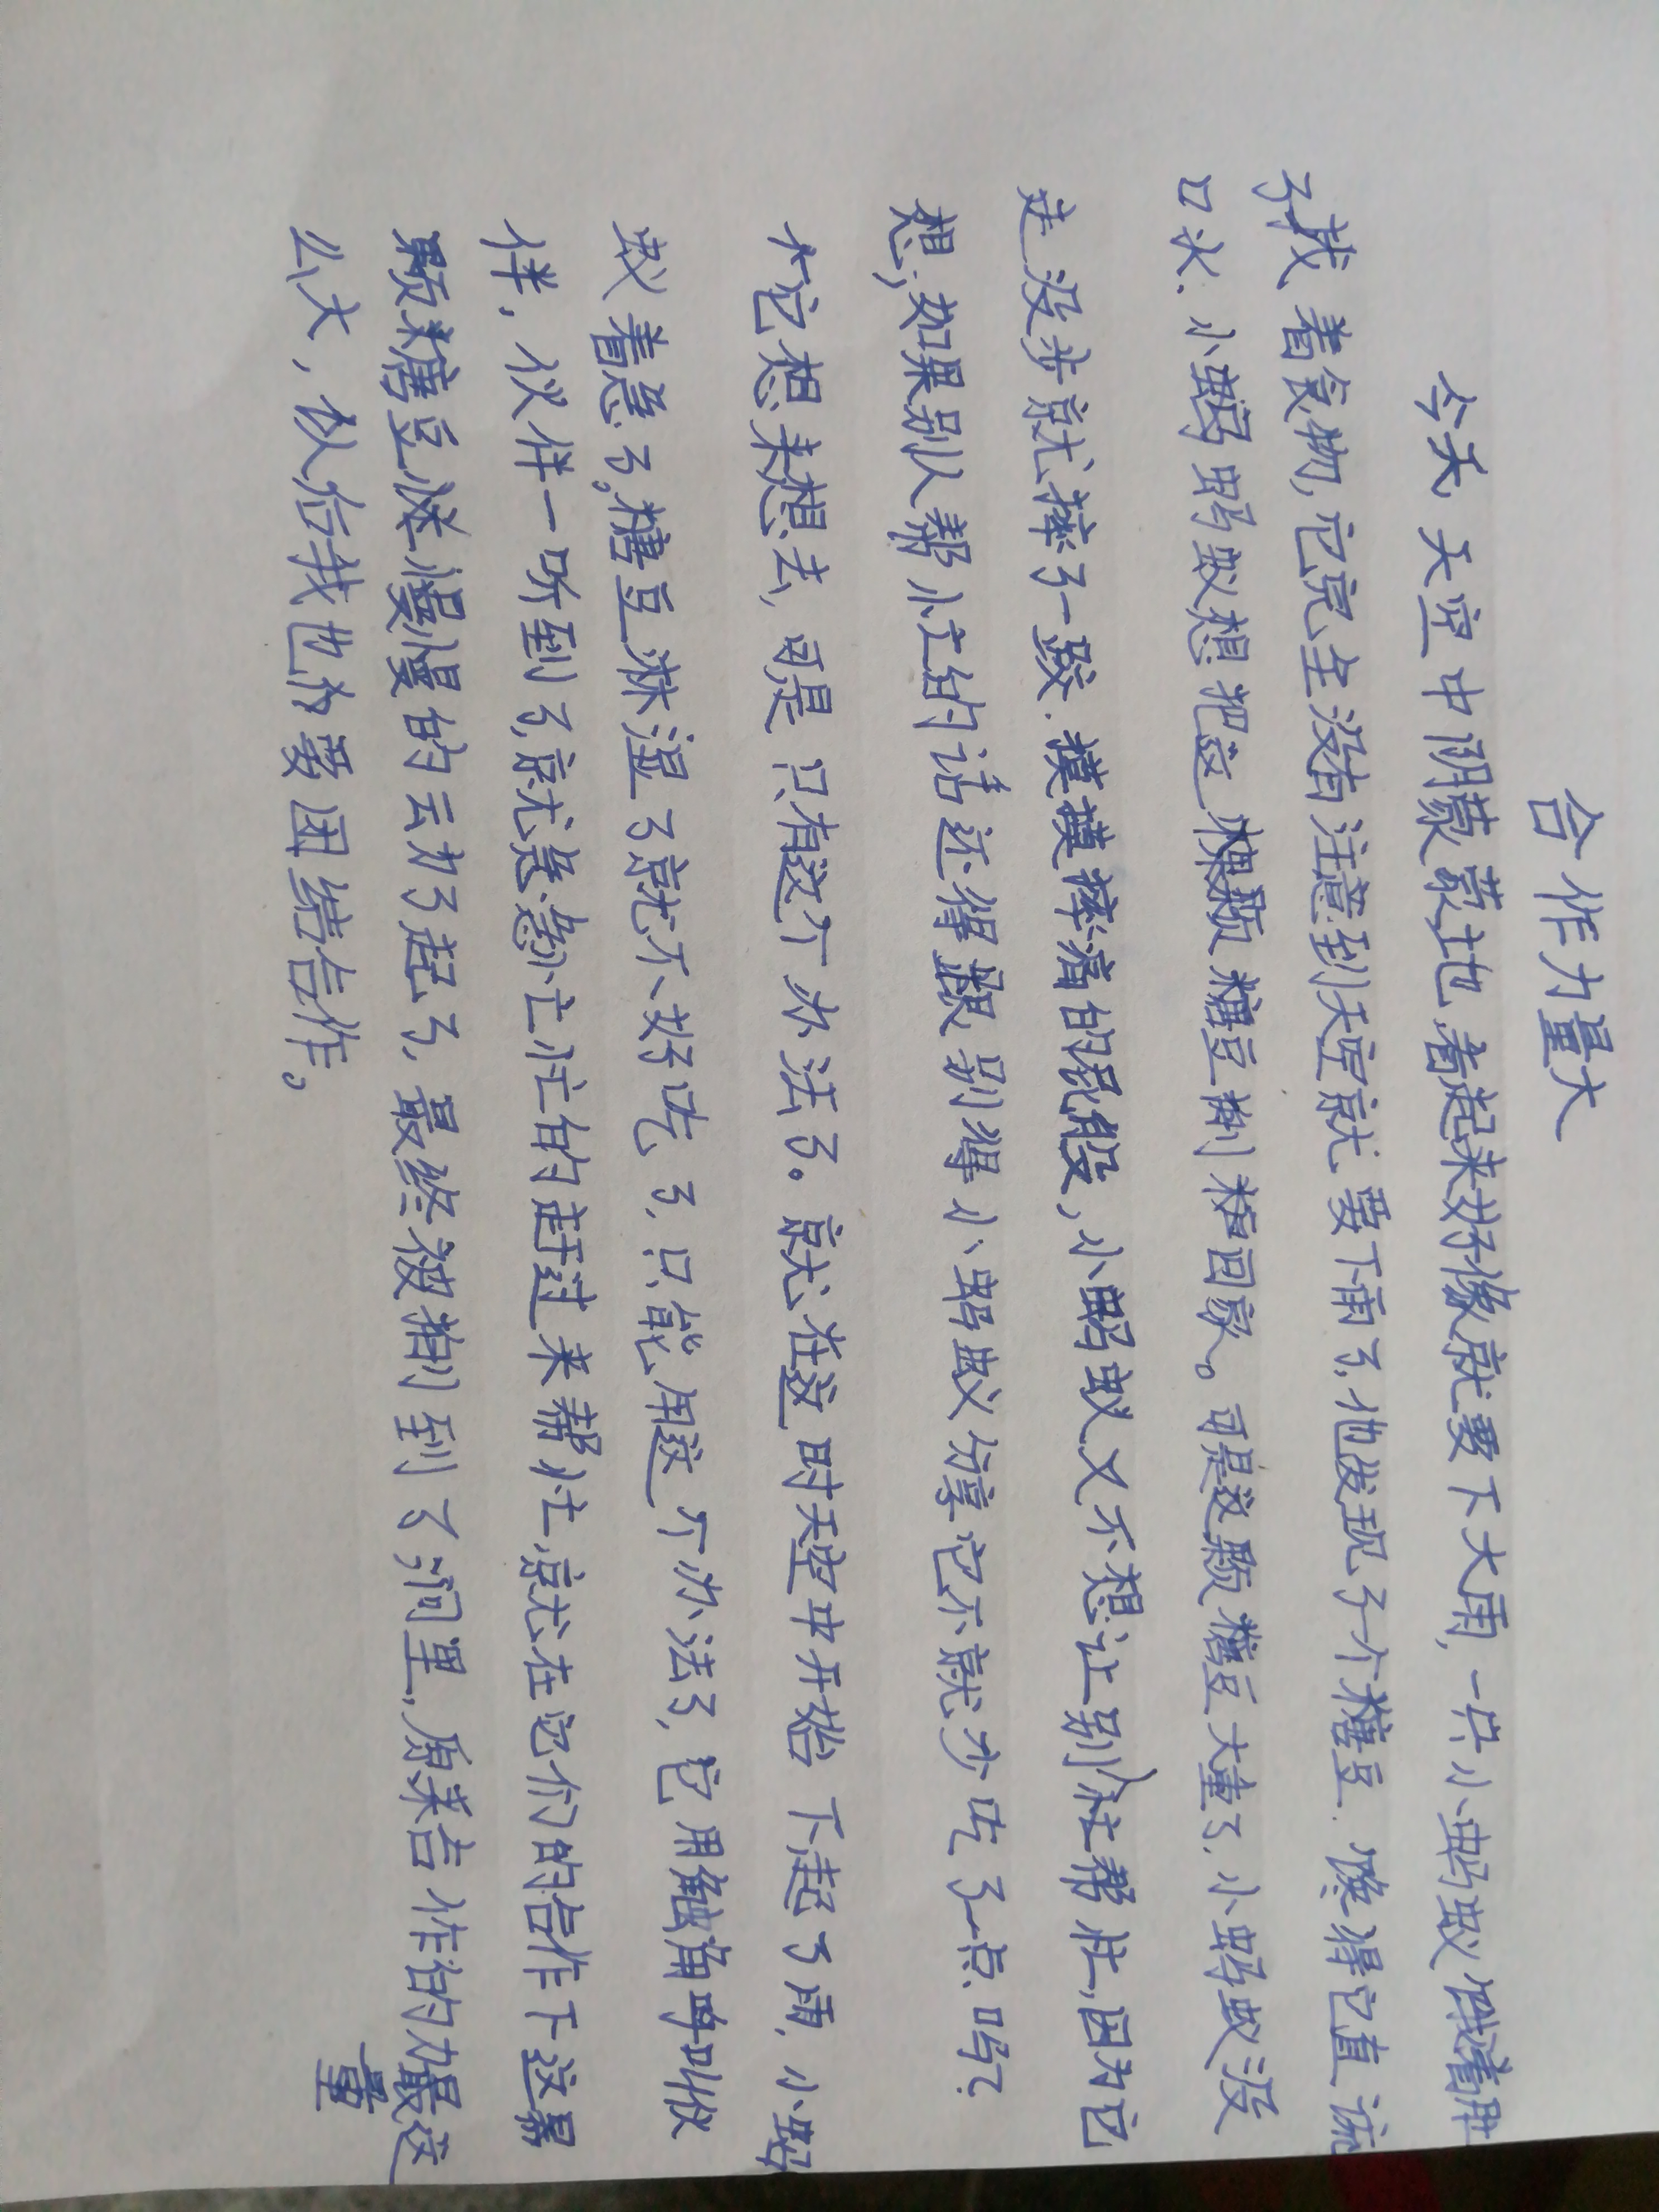 合作力量大
今天,天空中阴蒙蒙地,着起来好像就要下大雨,一只小蚂蚁饿着肚
子找着食物,它完全没有注意到天空就要下雨了,他发现了个糖豆.馋得它直流
口水.小蚂蚁想把这棵颗糖豆搬回家。可是这颗糖豆大重了,小蚂蚁没
走没步就摔了一跤.摸摸摔痛的屁股,小蚂蚁又不想让别人帮忙,因为它
想,如果别人帮小忙的话还得跟别得小蚂蚁分享它不就少吃了点吗?
个它想来想去,可是只有这个办法了。就在这时天空中开始下起了雨,小蚂
蚁着急了,糖豆淋湿了就不好吃了,只能用这个办法了,它用触角呼叫伙
伴,伙伴一听到了就急急忙忙的赶过来帮忙,就在它们的合作下这
颗糖豆慢慢的云力了起了,最终被搬到了洞里,原来合作的力量这
么大,以后我也要团结合作。